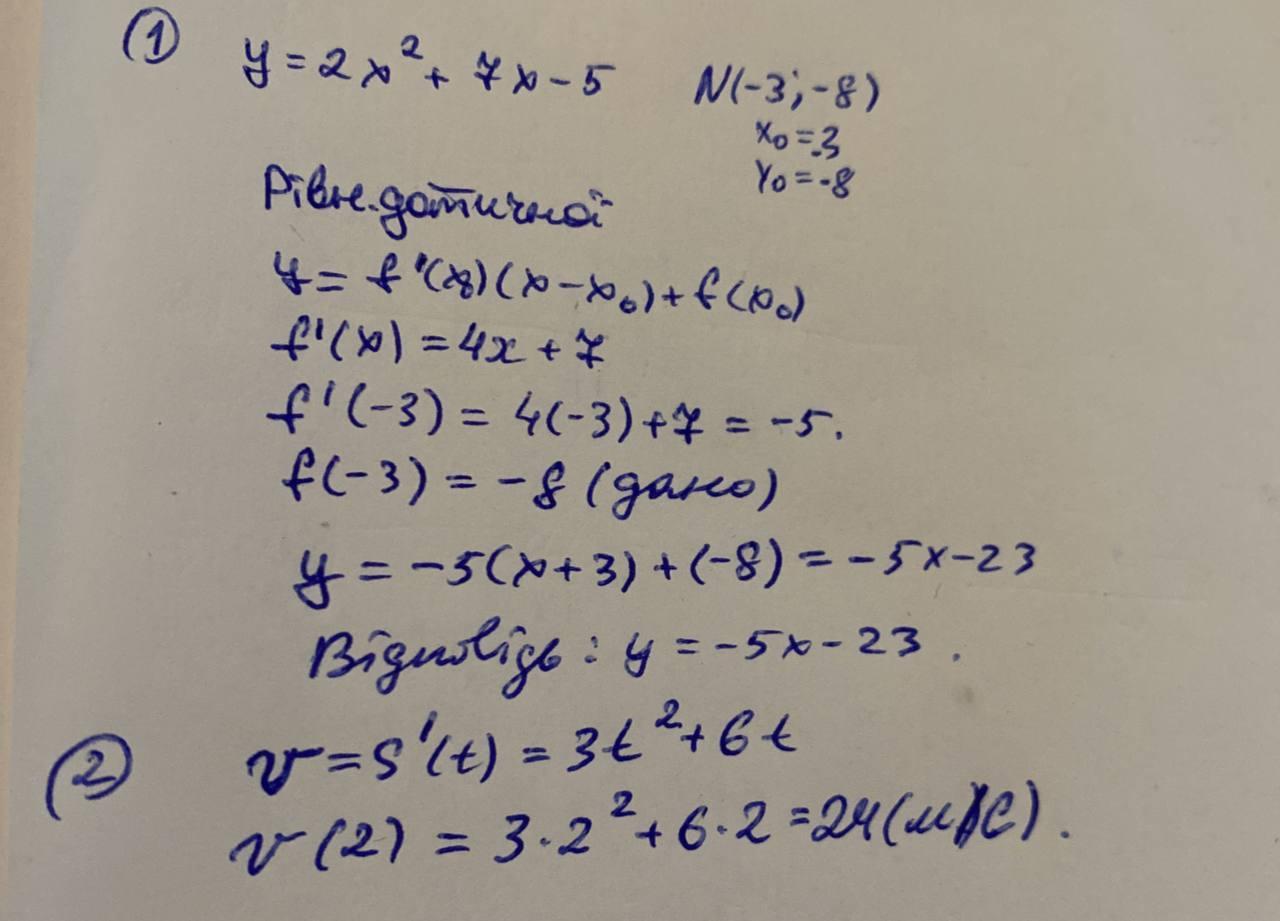 ① y = 2x² + 7x - 5 N(-3; -8)
x₀ = -3
y₀ = -8
Рівн. дотичної
y = f'(x₀)(x - x₀) + f(x₀)
f'(x) = 4x + 7
f'(-3) = 4(-3) + 7 = -5.
f(-3) = -8 (дано)
y = -5(x + 3) + (-8) = -5x - 23
Відповідь: y = -5x - 23.
② v = S'(t) = 3t² + 6t
v(2) = 3·2² + 6·2 = 24 (м/с).